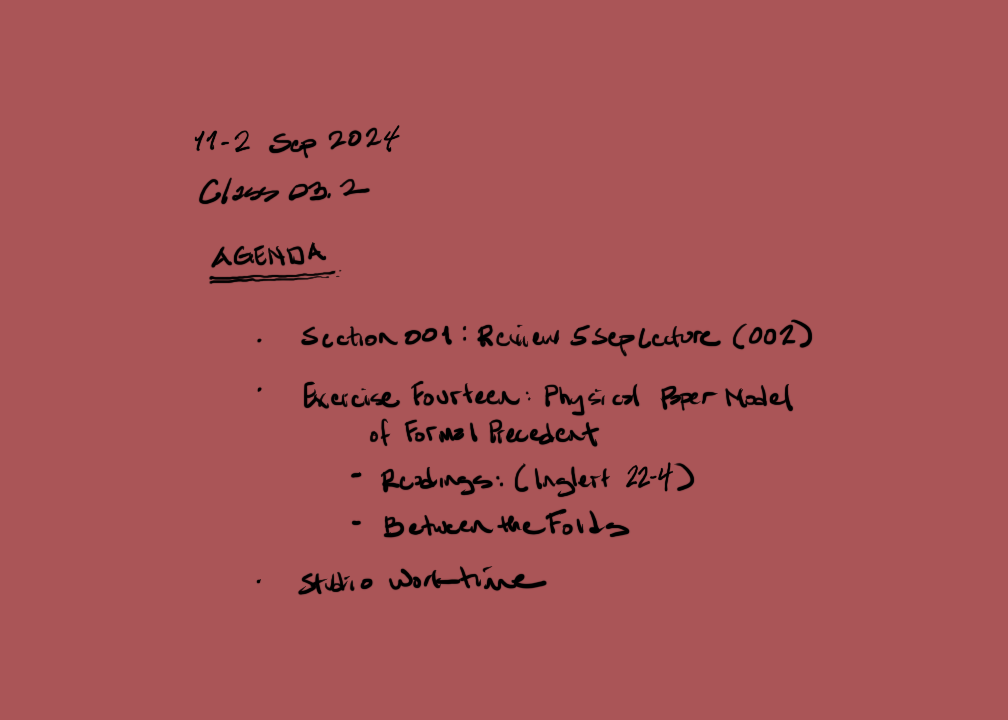 11-2 Sep 2024
Class 03.2
AGENDA
· Section 001: Review 5 Sep Lecture (002)
· Exercise Fourteen: Physical Paper Model
of Formal Precedent
- Readings: (Inglert 22-4)
- Between the Folds
· Studio Work-time